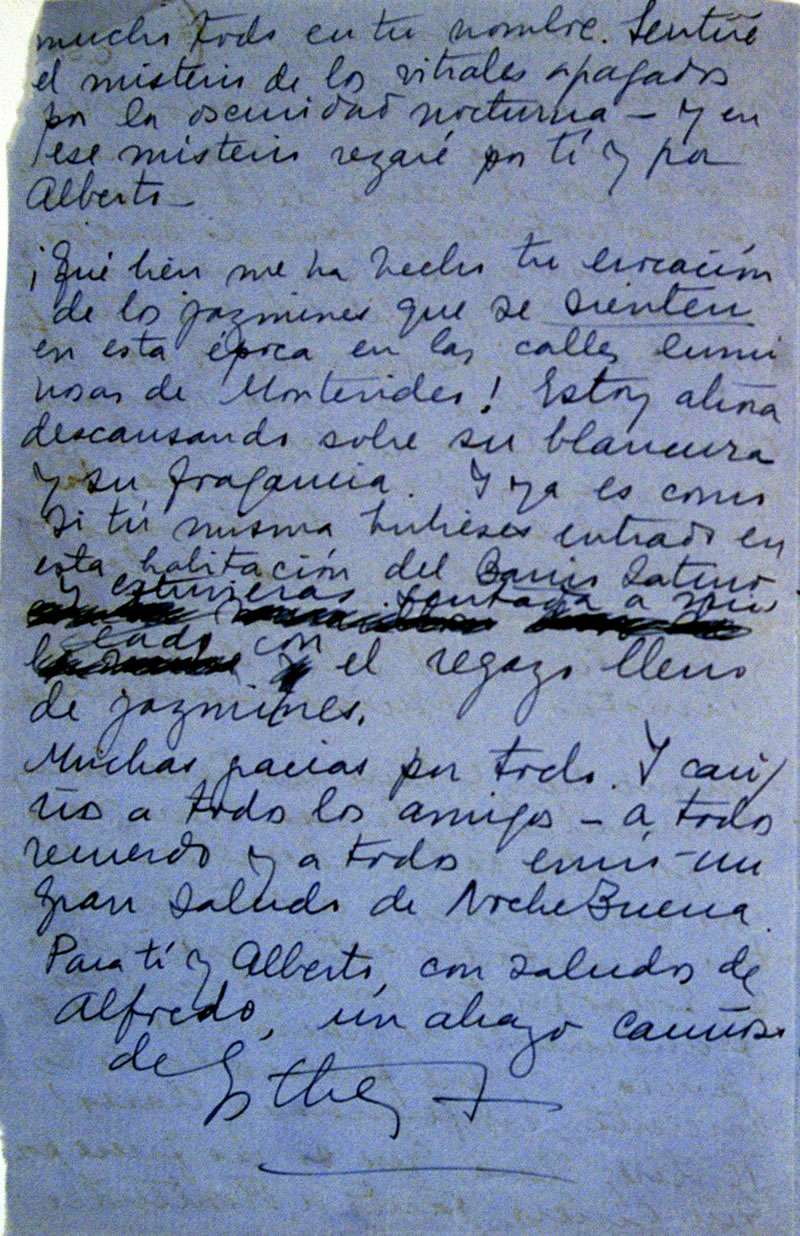 mucho todo en tu nombre. Sentiré
el misterio de los vitrales apagados
por la oscuridad nocturna – y en
ese misterio regaré por tí y por
Alberto –
¡Qué bien me ha hecho tu evocación
de los jazmines que se sienten
en esta época en las calles lumi
nosas de Montevideo! Estoy ahora
descansando sobre su blancura
y su fragancia. Y ya es como
si tú misma hubieses entrado en
esta habitación del Barrio Latino
y estuvieras sentada a mi
lado con
el regazo lleno
de jazmines.
Muchas gracias por todo. Y cari
ños a todo los amigos – a todos
recuerdo y a todos envío un
gran saludo de NocheBuena.
Para tí y Alberto, con saludos de
Alfredo, un abrazo cariñoso
de Esther